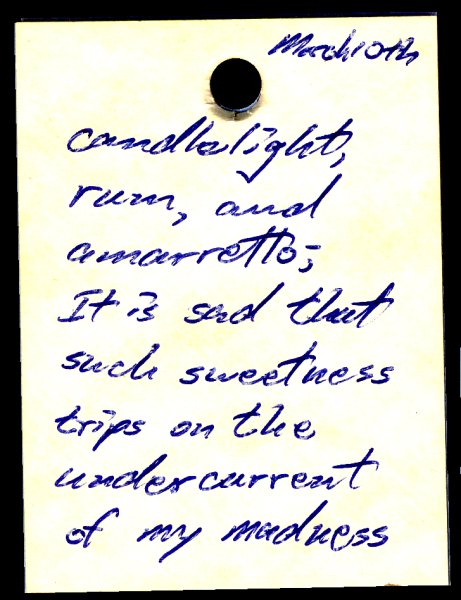 March 10th
candlelight,
rum, and
amarretto;
It is sad that
such sweetness
trips on the
undercurrent
of my madness